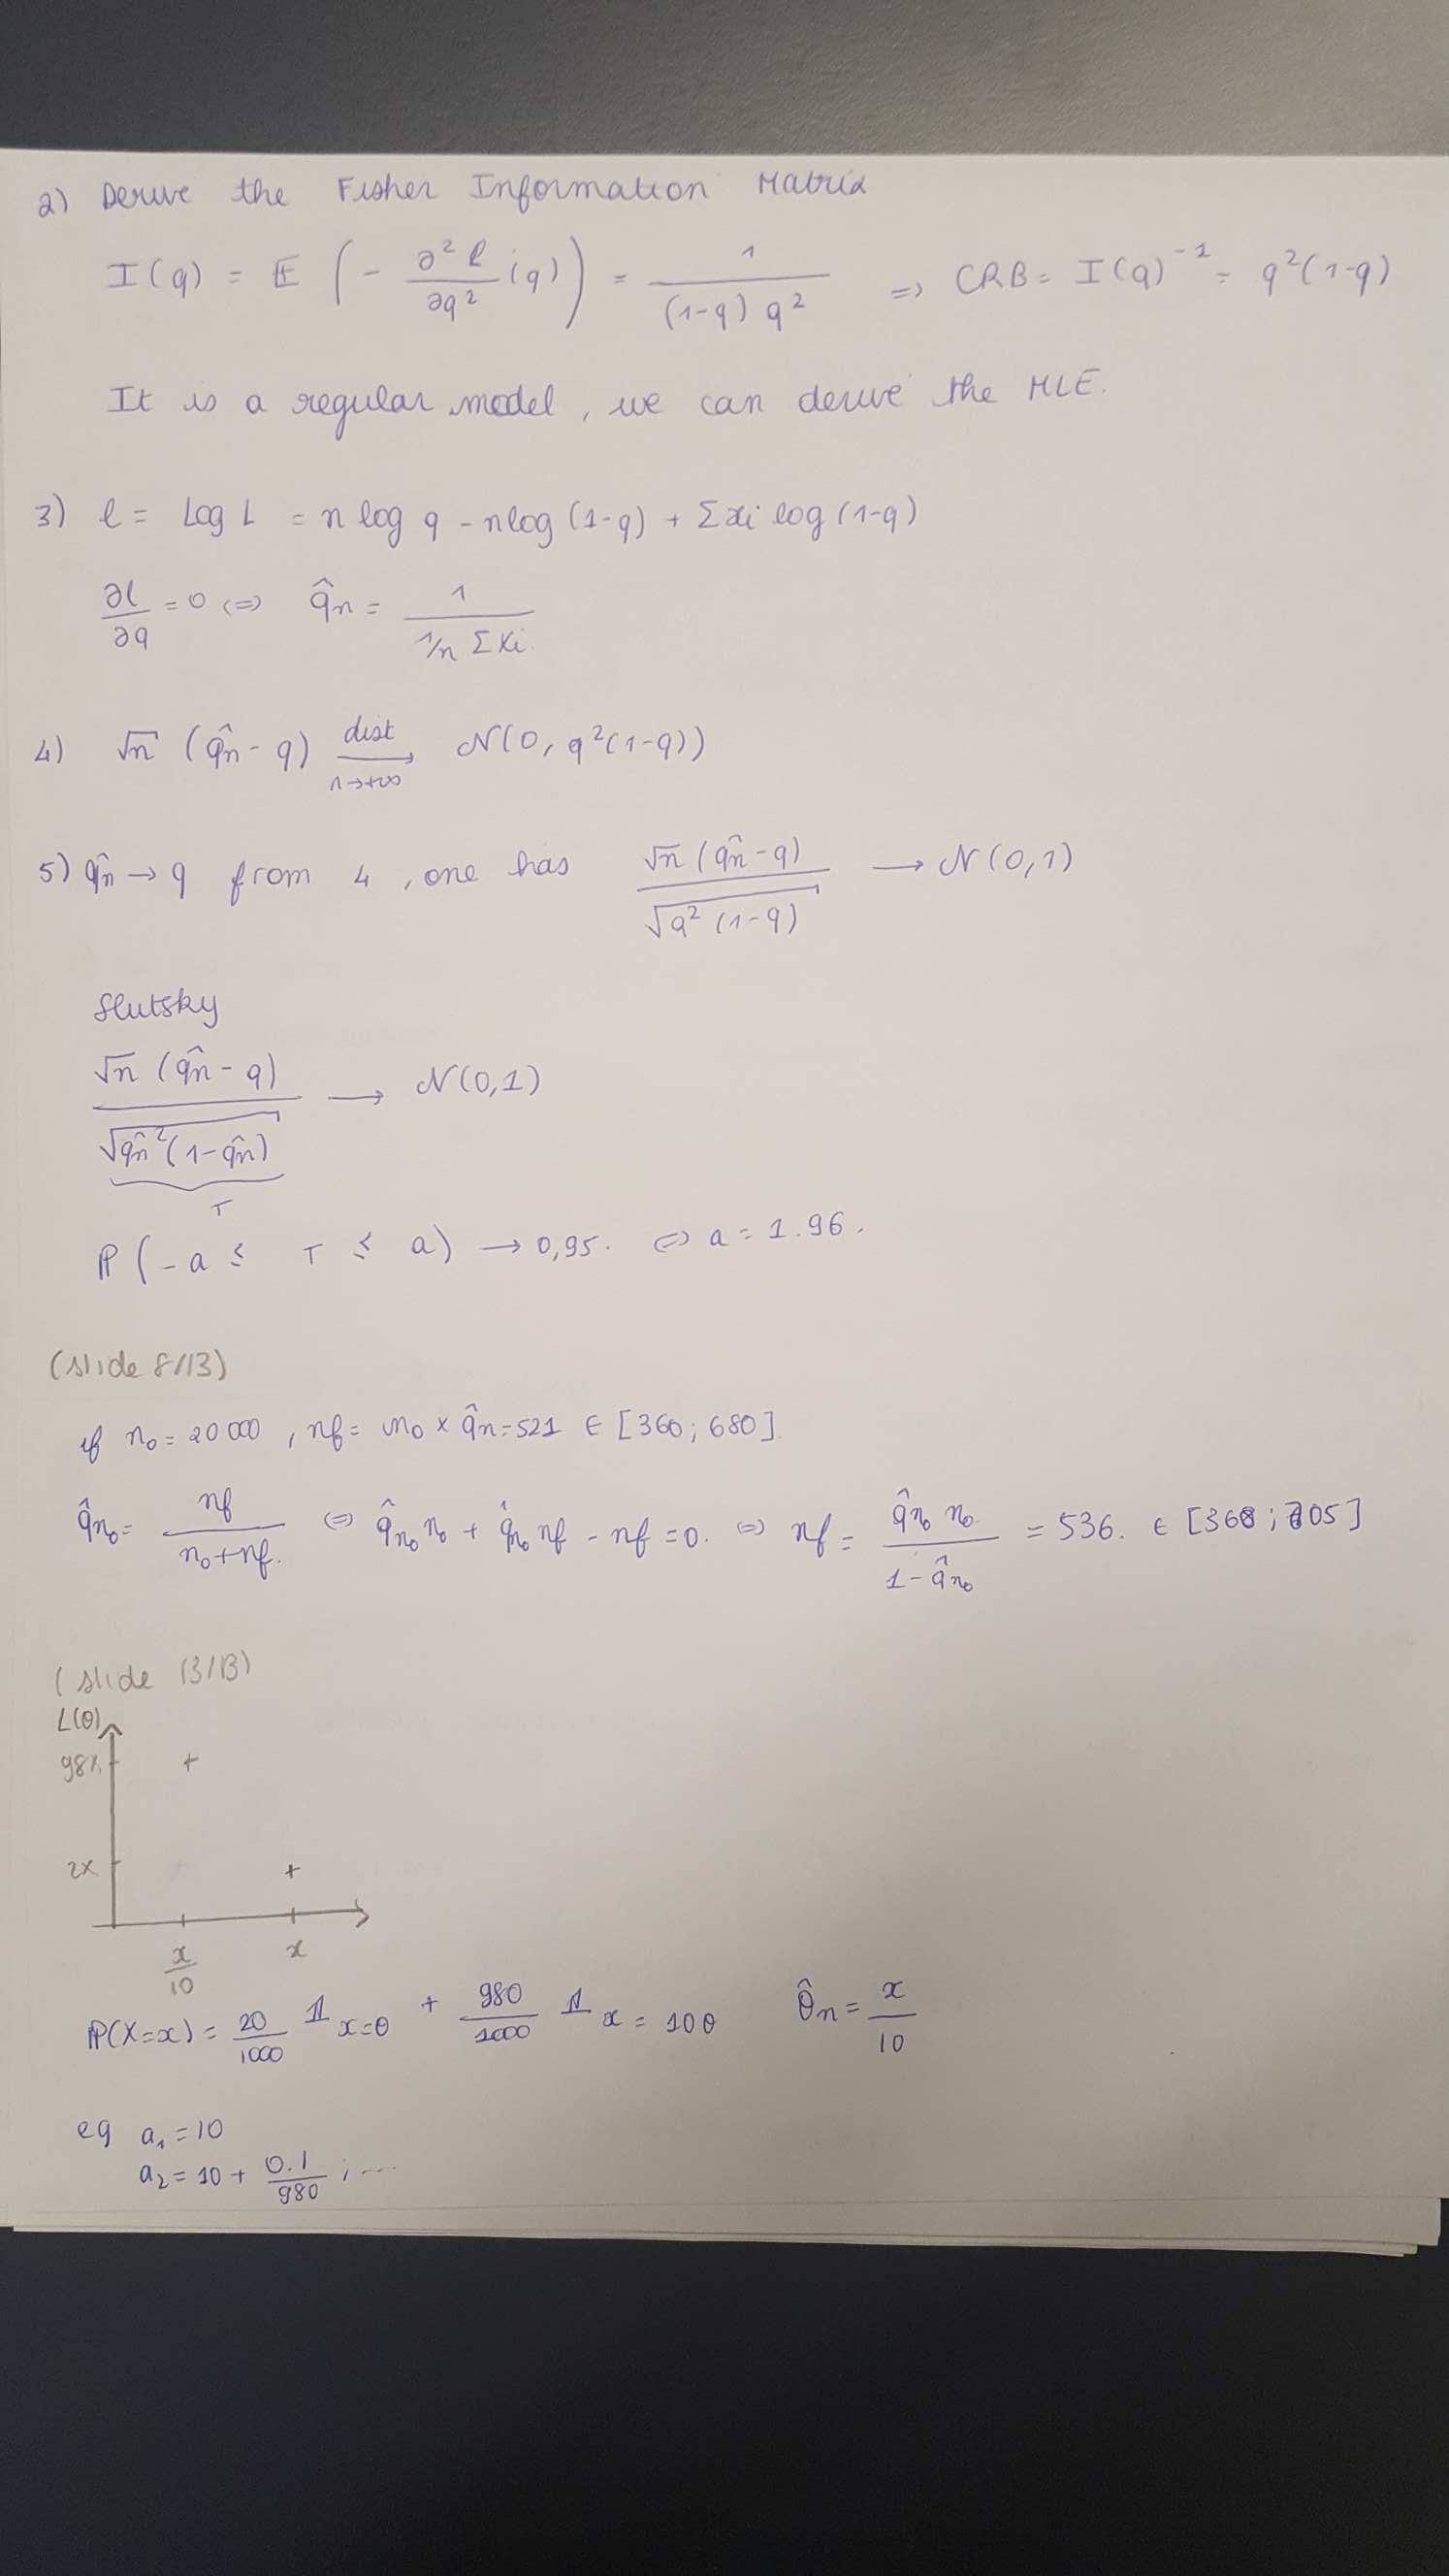 2) Derive the Fisher Information Matrix
I(q) = E ( - ∂²ℓ/∂q² (q) ) = 1/((1-q) q²) => CRB = I(q)⁻¹ = q²(1-q)
It is a regular model, we can derive the MLE.
3) ℓ = Log L = n log q - n log (1-q) + Σ xi log (1-q)
∂ℓ/∂q = 0 (=) q̂n = 1/(1/n Σ Xi)
4) √n (q̂n - q) dist→ n→+∞ N(0, q²(1-q))
5) q̂n → q from 4, one has √n (q̂n - q)/√(q² (1-q)) → N(0,1)
Slutsky
√n (q̂n - q)/√(q̂n² (1-q̂n)) → N(0,1)
T
P (-a ≤ T ≤ a) → 0,95. (=) a = 1.96.
(slide 8/13)
if n₀ = 20 000, nf = n₀ × q̂n = 521 ∈ [360; 680].
q̂n₀ = nf/(n₀+nf). (=) q̂n₀ n₀ + q̂n₀ nf - nf = 0. (=) nf = q̂n₀ n₀/(1-q̂n₀) = 536. ∈ [368; 705]
(slide 13/13)
L(θ)
98%
2%
x/10 x
P(X=x) = 20/1000 𝟙 x=θ + 980/1000 𝟙 x = 10θ θ̂n = x/10
eg a₁ = 10
a₂ = 10 + 0.1/980 ; ...